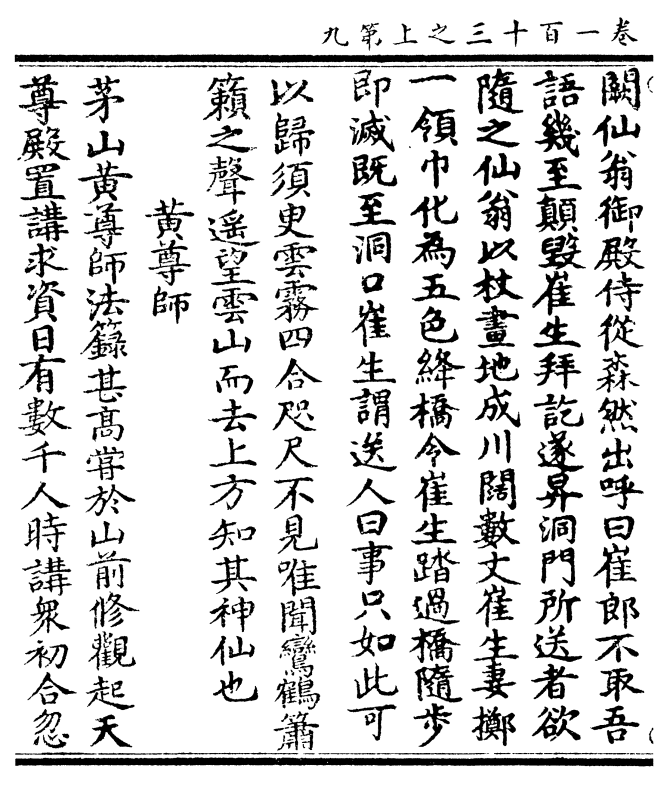 卷一百十三之上第九
闕仙翁御殿侍從森然出呼曰崔郎不取吾
語幾至顛毀崔生拜訖遂昇洞門所送者欲
隨之仙翁以杖畫地成川闊數丈崔生妻擲
一領巾化為五色絳橋令崔生踏過橋隨步
即滅既至洞口崔生謂送人曰事只如此可
以歸須史雲霧四合咫尺不見唯聞鸞鶴簫
籟之聲遥望雲山而去上方知其神仙也
黄尊師
茅山黄尊師法籙甚髙甞於山前修觀起天
尊殿置講求資日有數千人時講衆初合忽